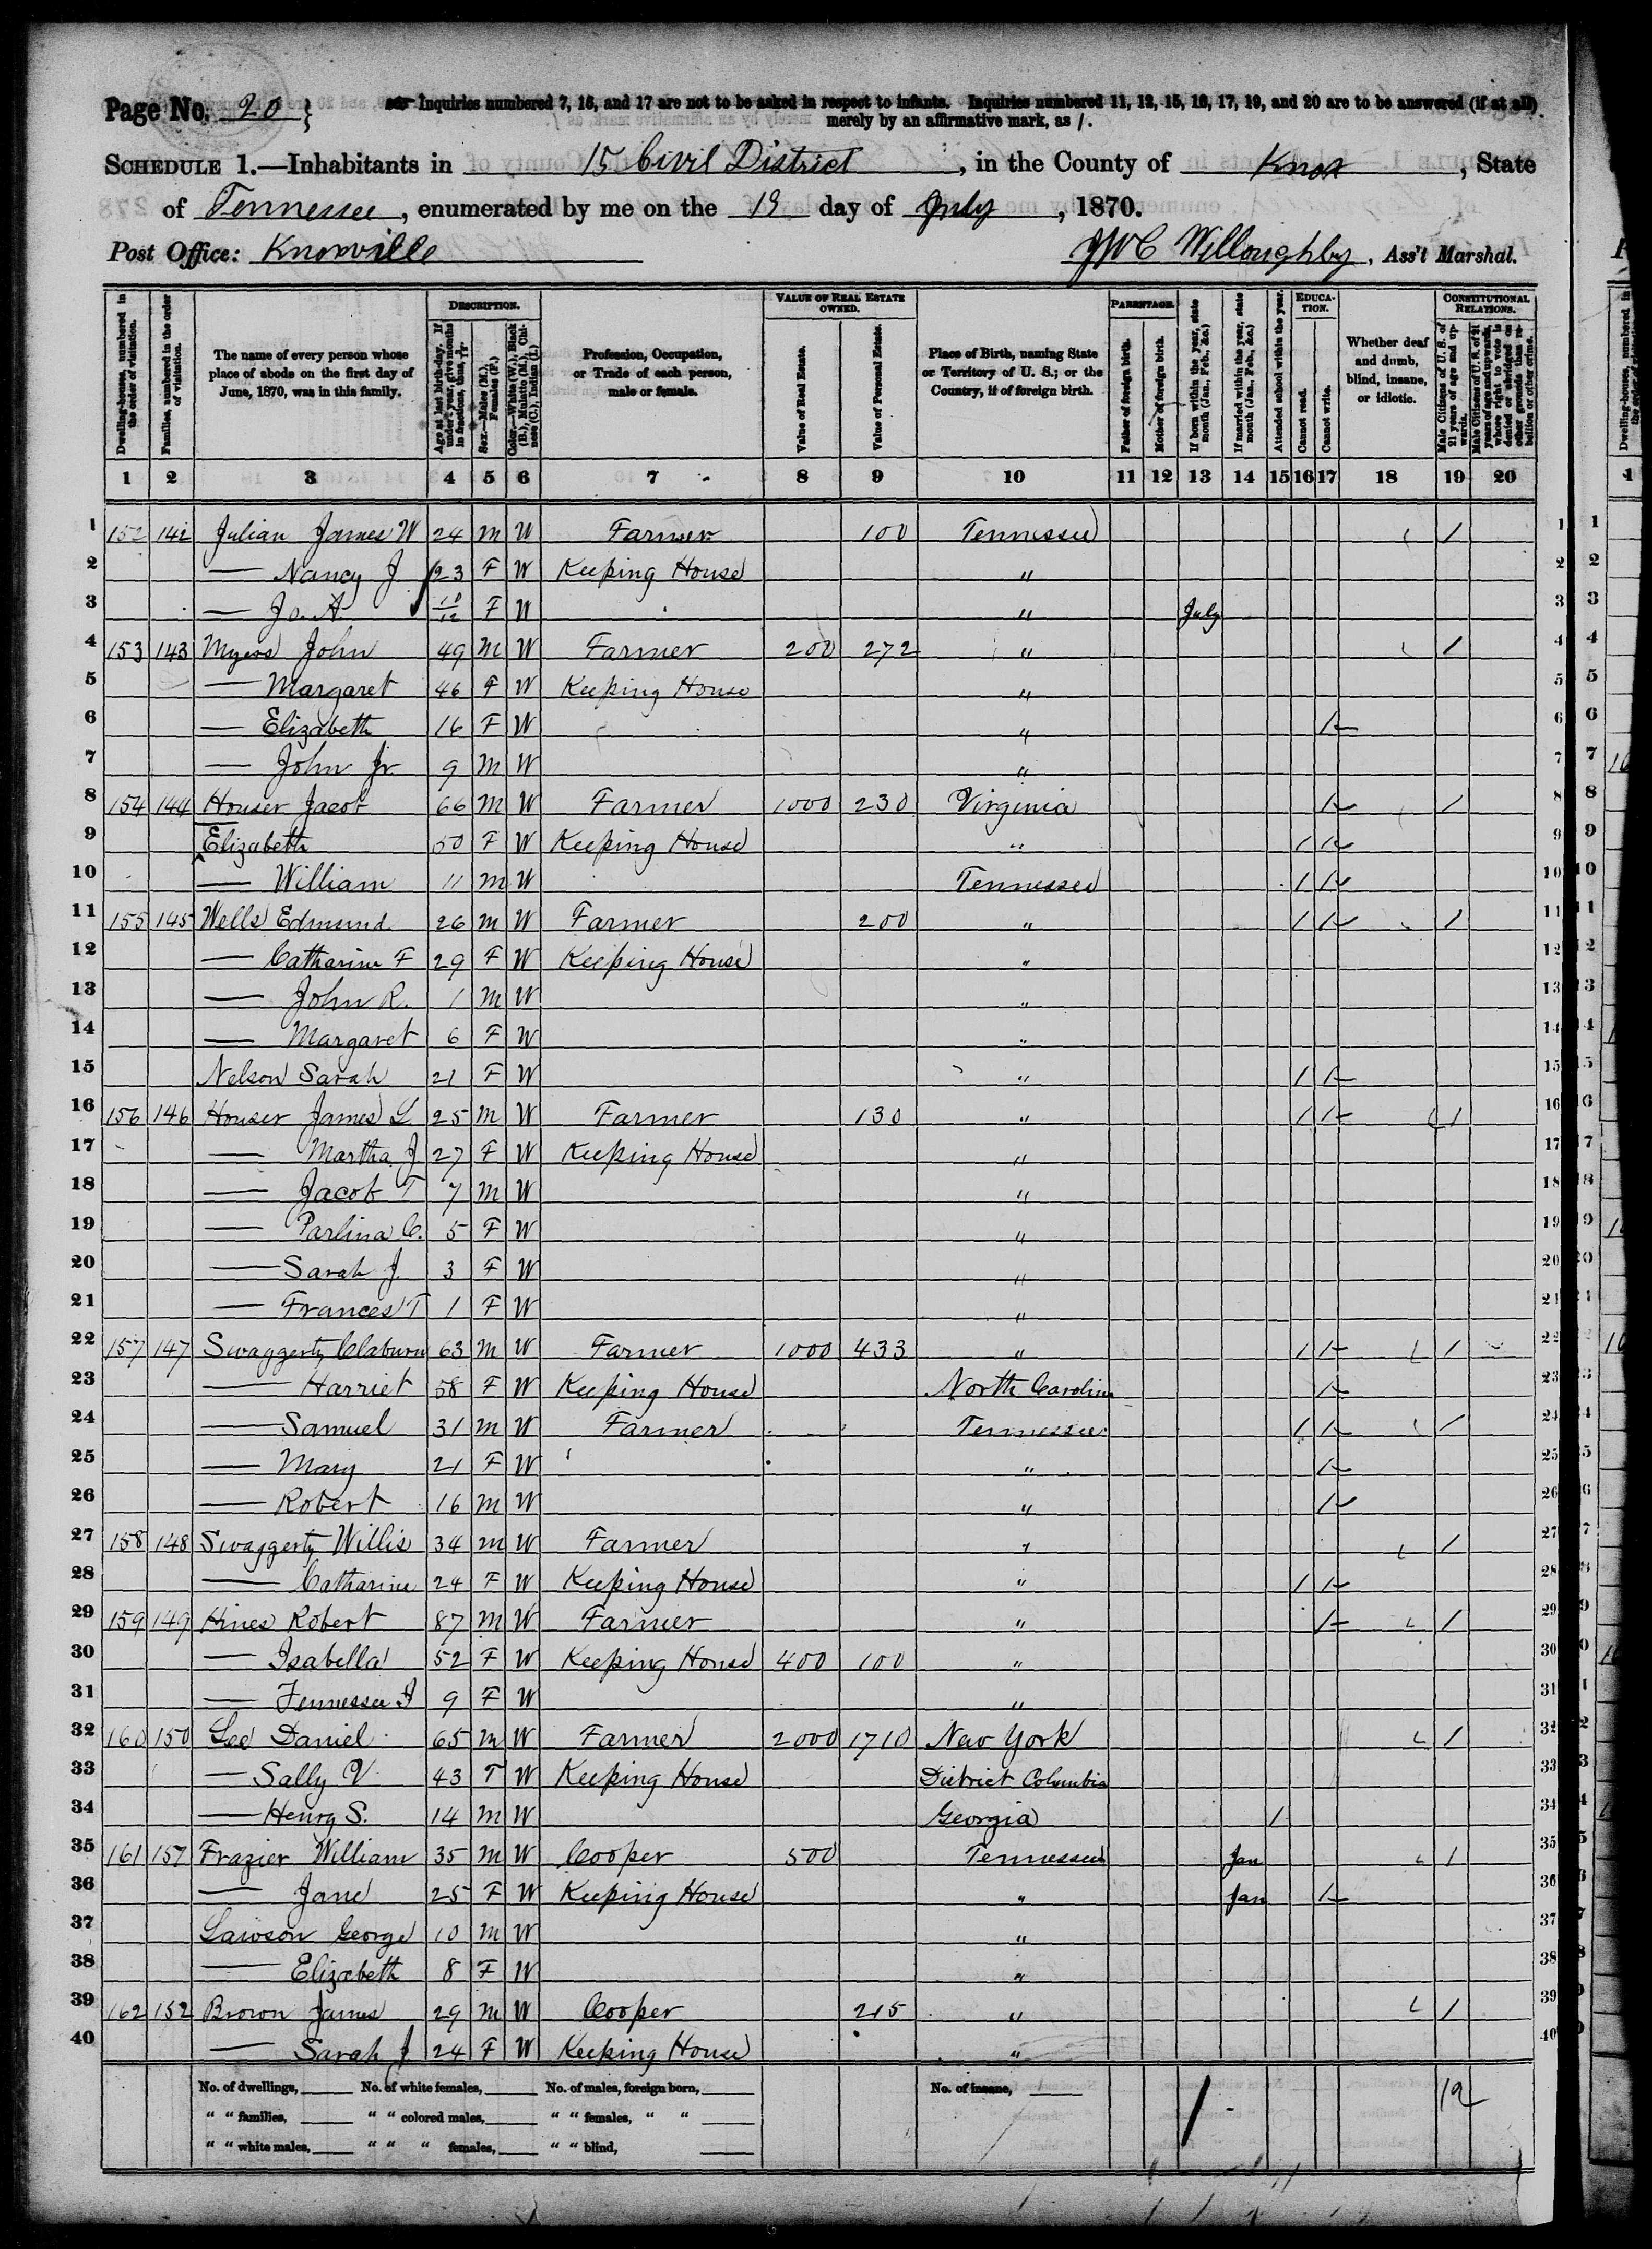 Page No. 20
Inquiries numbered 7, 16, and 17 are not to be asked in respect to infants. Inquiries numbered 11, 12, 15, 16, 17, 19, and 20 are to be answered (if at all)
merely by an affirmative mark, as /.
SCHEDULE 1.—Inhabitants in 15 Civil District, in the County of Knox, State
of Tennessee, enumerated by me on the 19 day of July, 1870.
Post Office: Knoxville
JWC Willoughby, Ass't Marshal.
Dwelling-houses, numbered in the order of visitation.
Families, numbered in the order of visitation.
The name of every person whose place of abode on the first day of June, 1870, was in this family.
DESCRIPTION.
Age at last birth-day. If under 1 year, give months in fractions, thus, 3/12.
Sex.—Males (M.), Females (F.)
Color.—White (W.), Black (B.), Mulatto (M.), Chinese (C.), Indian (I.)
Profession, Occupation, or Trade of each person, male or female.
VALUE OF REAL ESTATE OWNED.
Value of Real Estate.
Value of Personal Estate.
Place of Birth, naming State or Territory of U. S.; or the Country, if of foreign birth.
PARENTAGE.
Father of foreign birth.
Mother of foreign birth.
If born within the year, state month (Jan., Feb., &c.)
If married within the year, state month (Jan., Feb., &c.)
Attended school within the year.
EDUCATION.
Cannot read.
Cannot write.
Whether deaf and dumb, blind, insane, or idiotic.
CONSTITUTIONAL RELATIONS.
Male Citizens of U. S. of 21 years of age and upwards.
Male Citizens of U. S. of 21 years of age and upwards, whose right to vote is denied or abridged on other grounds than rebellion or other crime.
1 2 3 4 5 6 7 8 9 10 11 12 13 14 15 16 17 18 19 20
1 152 142 Julian James W 24 M W Farmer 100 Tennessee / 1
2 — Nancy J 23 F W Keeping House " 2
3 — Jo. A. 10/12 F W " July 3
4 153 143 Myers John 49 M W Farmer 200 272 " / 4
5 — Margaret 46 F W Keeping House " 5
6 — Elizabeth 16 F W " / 6
7 — John Jr. 9 M W " 7
8 154 144 Houser Jacob 66 M W Farmer 1000 230 Virginia / / 8
9 Elizabeth 50 F W Keeping House " / / 9
10 — William 11 M W Tennessee / / 10
11 155 145 Wells Edmund 26 M W Farmer 200 " / / / 11
12 — Catharine F 29 F W Keeping House " 12
13 — John R. 1 M W " 13
14 — Margaret 6 F W " 14
15 Nelson Sarah 21 F W " / / 15
16 156 146 Houser James L 25 M W Farmer 130 " / / / 16
17 — Martha J 27 F W Keeping House " 17
18 — Jacob T 7 M W " 18
19 — Parlina C. 5 F W " 19
20 — Sarah J. 3 F W " 20
21 — Frances T 1 F W " 21
22 157 147 Swaggerty Claburn 63 M W Farmer 1000 433 " / / / 22
23 — Harriet 58 F W Keeping House North Carolina / 23
24 — Samuel 31 M W Farmer Tennessee / / / 24
25 — Mary 21 F W " / 25
26 — Robert 16 M W " / 26
27 158 148 Swaggerty Willis 34 M W Farmer " / 27
28 — Catharine 24 F W Keeping House " / / 28
29 159 149 Hines Robert 87 M W Farmer " / / 29
30 — Isabella 52 F W Keeping House 400 100 " 30
31 — Tennessee J 9 F W " 31
32 160 150 Lee Daniel 65 M W Farmer 2000 1710 New York / 32
33 — Sally V 43 F W Keeping House District Columbia 33
34 — Henry S. 14 M W Georgia / 34
35 161 151 Frazier William 35 M W Cooper 500 Tennessee Jan / 35
36 — Jane 25 F W Keeping House " Jan / 36
37 Lawson George 10 M W " 37
38 — Elizabeth 8 F W " 38
39 162 152 Brown James 29 M W Cooper 215 " / 39
40 — Sarah J. 24 F W Keeping House " 40
No. of dwellings, No. of white females, No. of males, foreign born, No. of insane, 12
" " families, " " colored males, " " females, " "
" " white males, " " " females, " " blind,